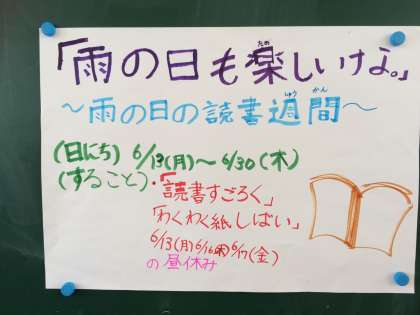 「雨の日も楽しいけよ。」
～雨の日の読書週間～
(日にち) 6/13(月)～6/30(木)
(すること)・「読書すごろく」
「わくわく紙しばい」
6/13(月)6/16(木)6/17(金)
の昼休み